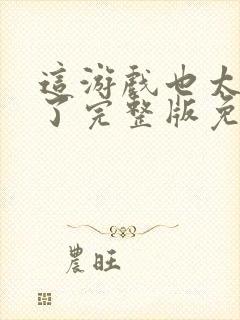 這游戲也太
了完整版免
農旺